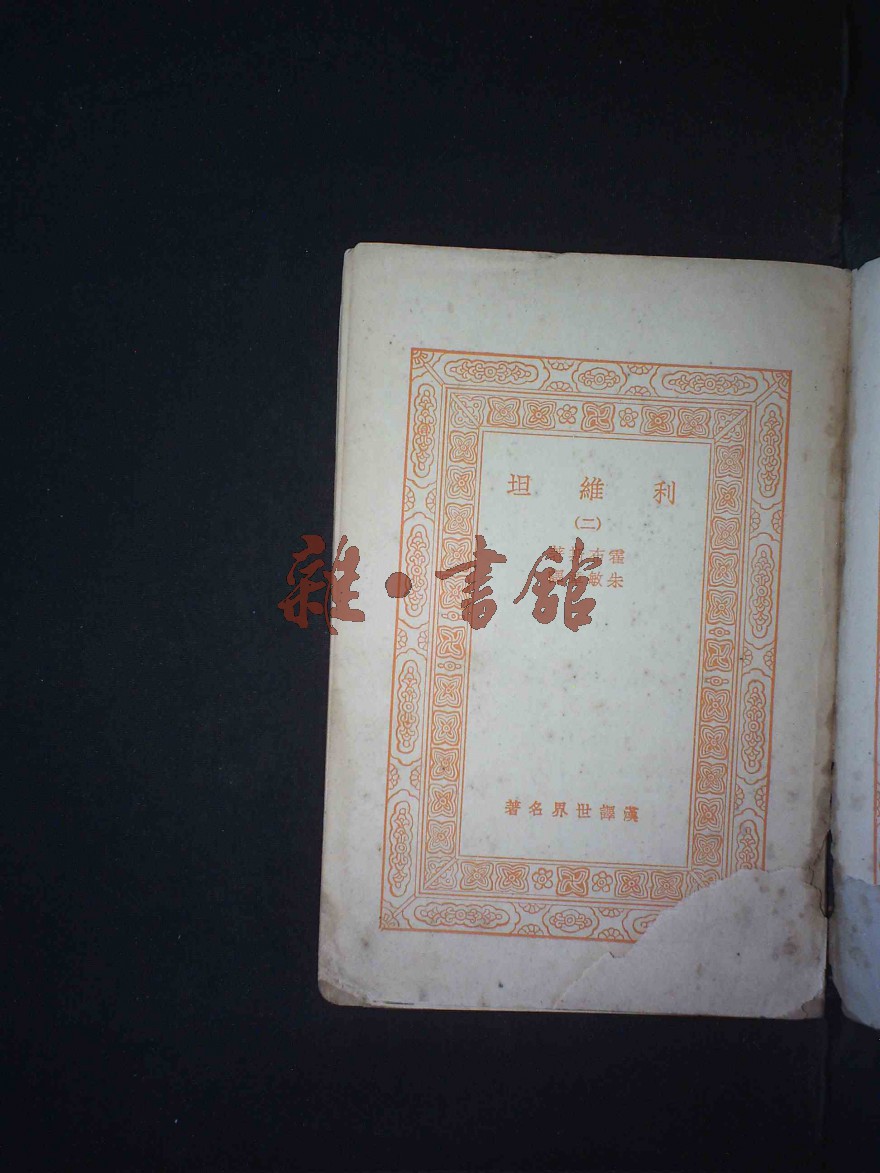 利維坦
(二)
霍布
朱敏
漢譯世界名著
雜·書館